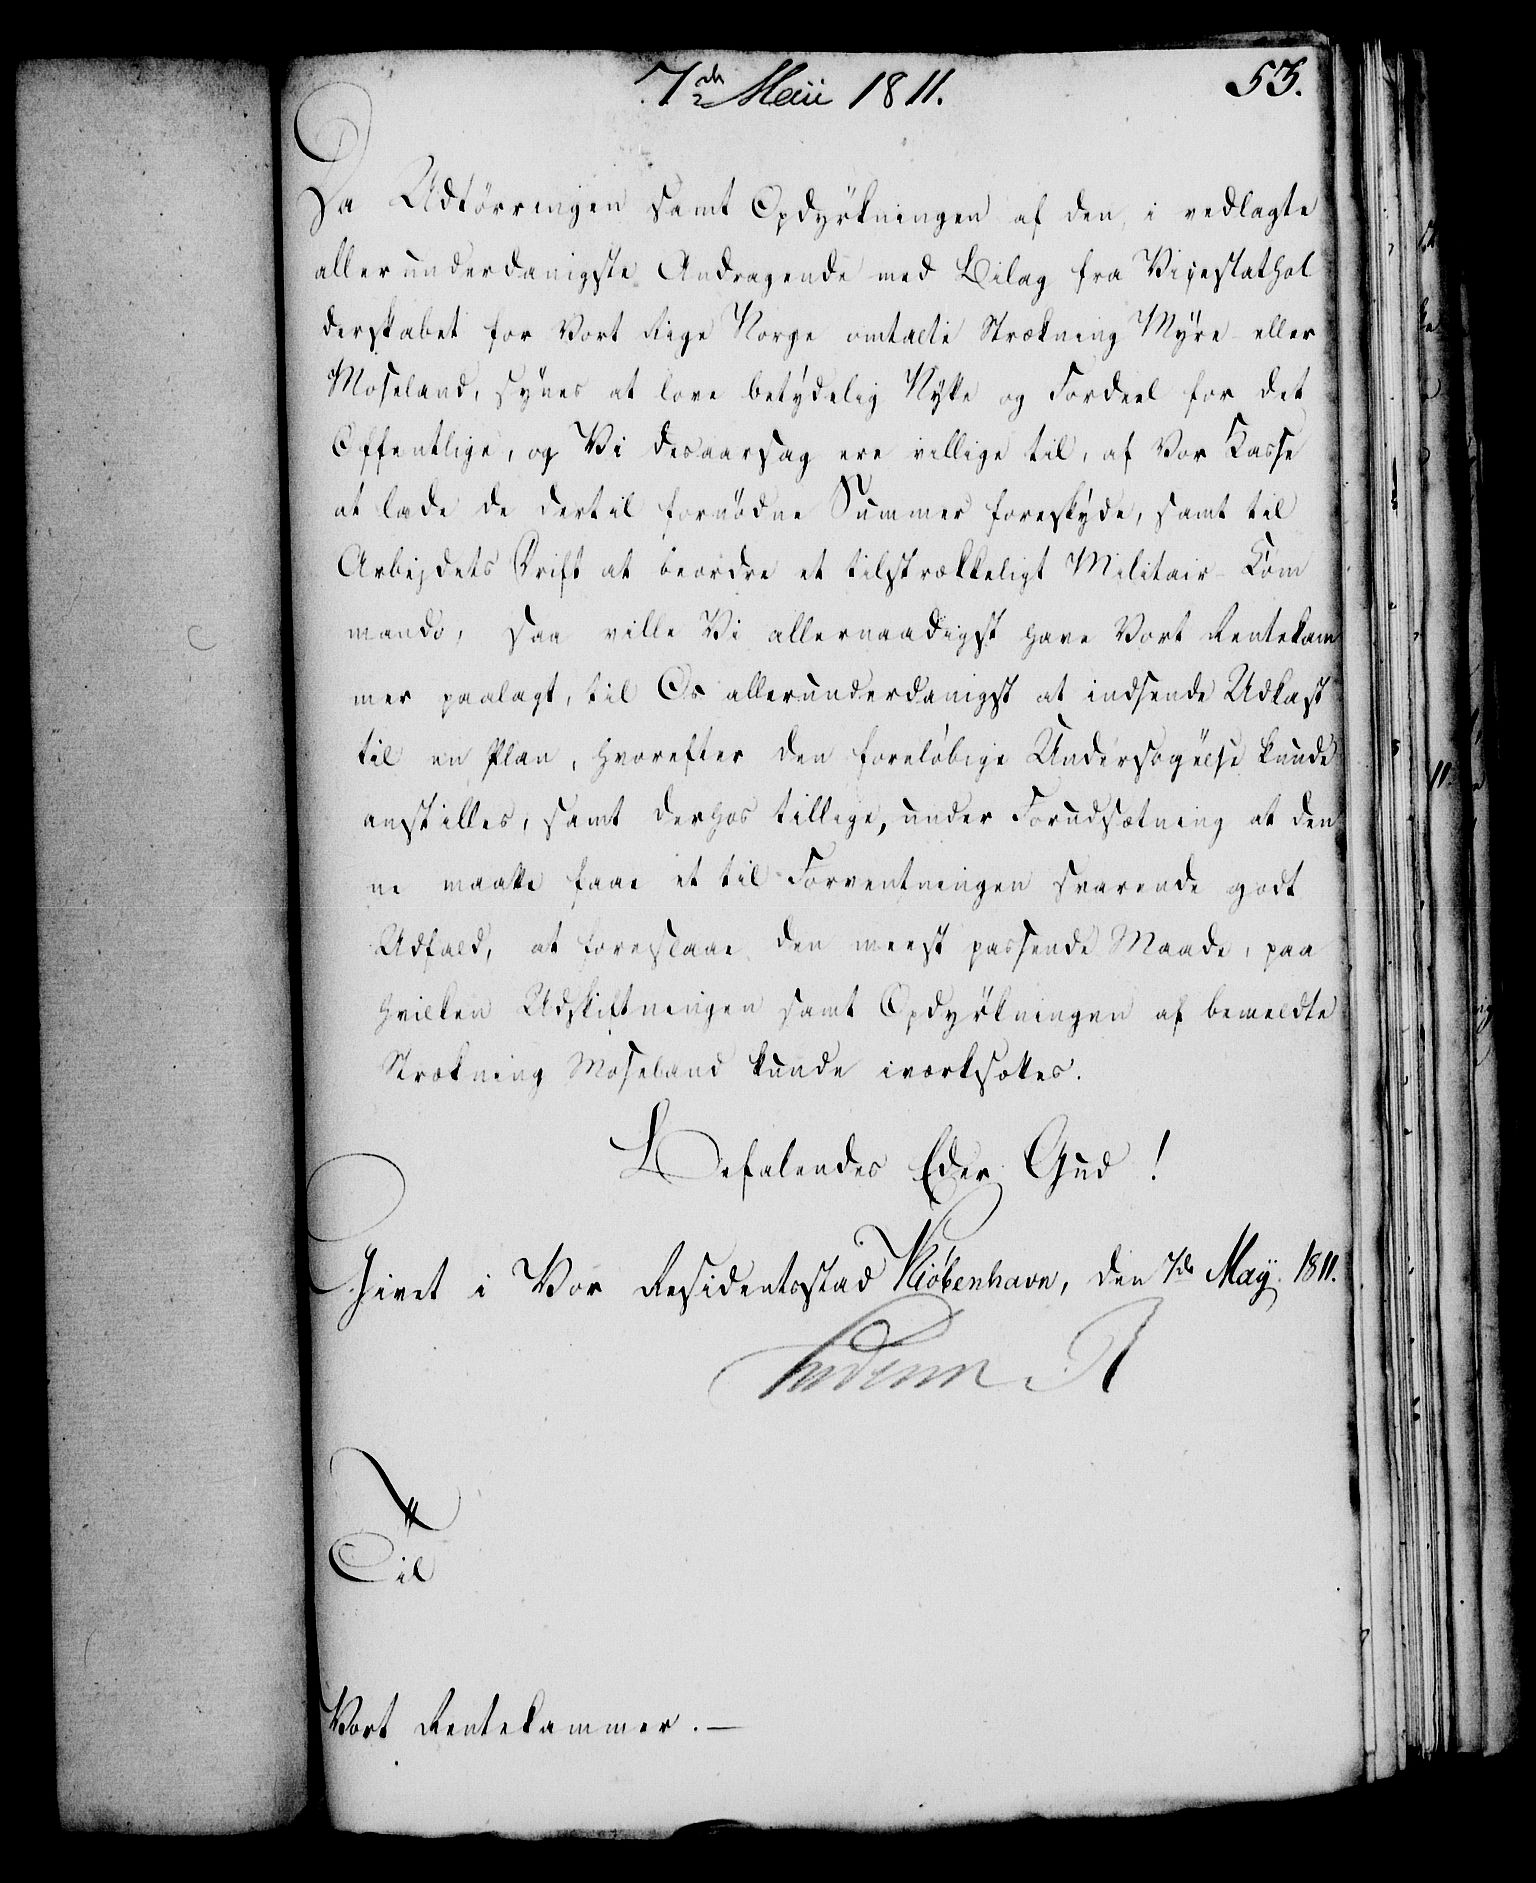 7de Maii 1811.
53.
Da Udtörringen samt Opdyrkningen af den, i vedlagte
allerunderdanigste Andragende med Bilag fra Vicestathol
derskabet for Vort Rige Norge omtalte Strækning Myre- eller
Moseland, synes at love betydelig Nytte og Fordeel for det
Offentlige, og Vi desaarsag ere villige til, af Vor Kasse
at lade de dertil fornödne Summer foreskyde, samt til
Arbejdets Drift at beordre et tilstrækkeligt Militair-Kom
mando, saa ville Vi allernaadigst have Vort Rentekam
mer paalagt, til Os allerunderdanigst at indsende Udkast
til en Plan, hvorefter den foreløbige Undersøgelse kunde
anstilles, samt derhos tillige, under Forudsætning at den
ne maatte faae et til Forventningen svarende godt
Udfald, at foreslaae den meest passende Maade, paa
hvilken Udskiftningen samt Opdyrkningen af bemeldte
Strækning Moseland kunde iværksættes.
Befalendes Eder Gud!
Givet i Vor Residentsstad Kiøbenhavn, den 7de Maÿ. 1811.
Frederik R
Til
Vort Rentekammer. —